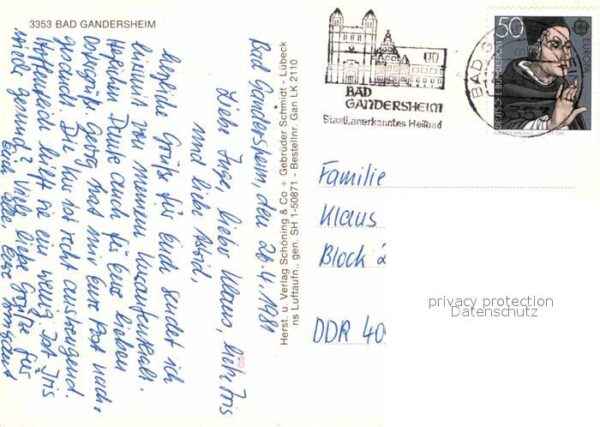 3353 BAD GANDERSHEIM
Bad Gandersheim, den 26.4.1981
Liebe Inge, lieber Klaus, liebe Iris
und liebe Astrid,
herzliche Grüße für Euch sendet ich
hiermit von meinem Kuraufenthalt.
Herzlichen Dank auch für Eure lieben
Ostergrüße. Georg hat mir Eure Post nach-
gesandt. Die Kur ist recht anstrengend.
Hoffentlich hilft sie ein wenig. Ist Iris
wieder gesund? Viele liebe Grüße für
Euch alle Eure
Herst. u. Verlag Schöning & Co + Gebrüder Schmidt - Lübeck
ns Luftaufn., gen. SH 1-50871 - Bestellnr. Gan LK 2110
BAD
GANDERSHEIM
Staatl. anerkanntes Heilbad
BAD G
50
EUROPA
DEUTSCHE BUNDESPOST
Familie
Klaus
Block 2
DDR 40
privacy protection
Datenschutz